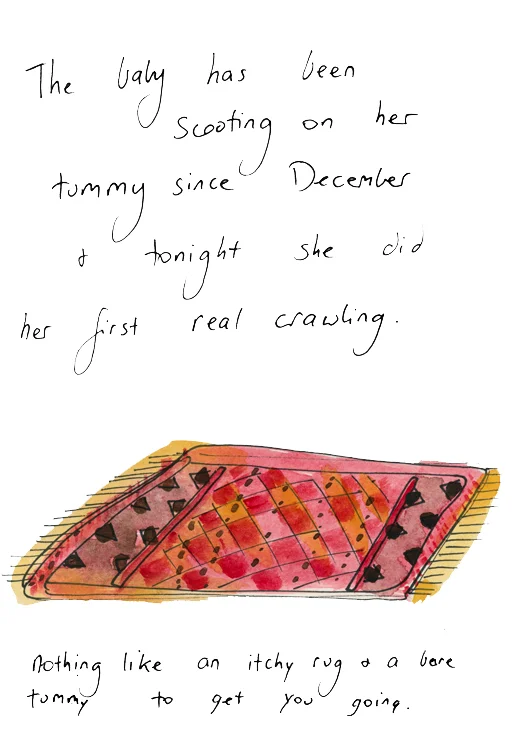 The baby has been
scooting on her
tummy since December
& tonight she did
her first real crawling.
Nothing like an itchy rug & a bare
tummy to get you going.